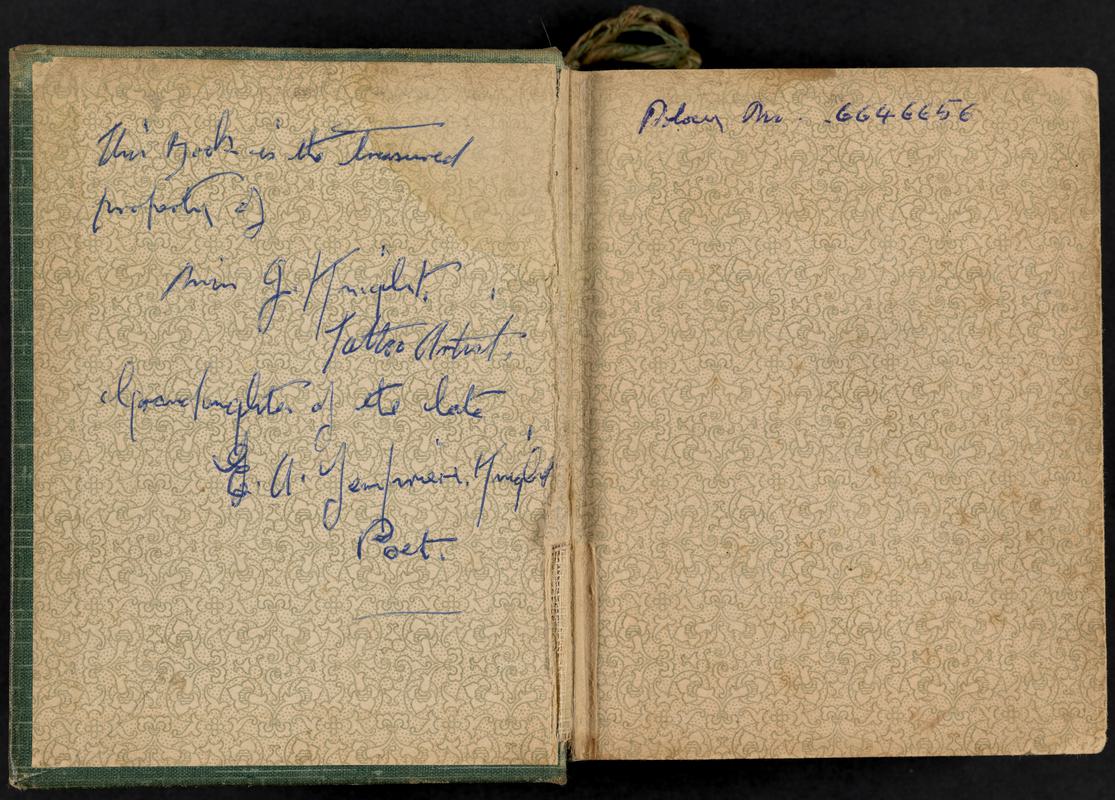 This Book is the treasured
property of
Miss J. Knight.
Tattoo Artist.
Grandaughter of the late
E. A. Knight
Poet.
No. 6646656